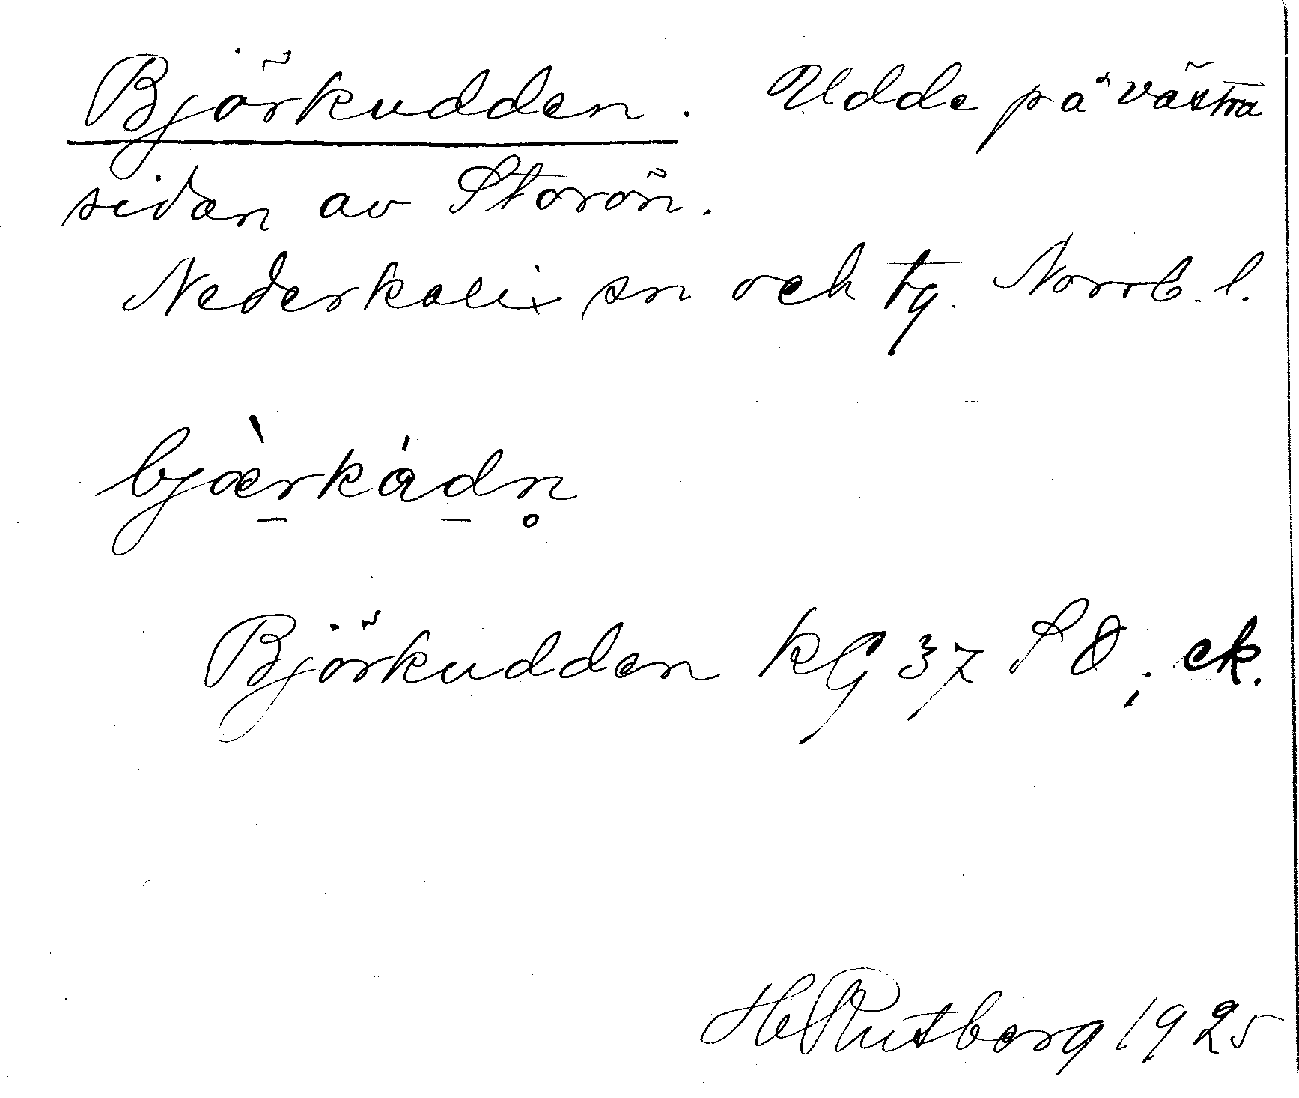 Björkudden. Udde på västra
sidan av Storön.
Nederkalix sn och tg. Norrb. l.
bjæ̀rkádn̥
Björkudden kG 37 SO; ek.
H Rutberg 1925